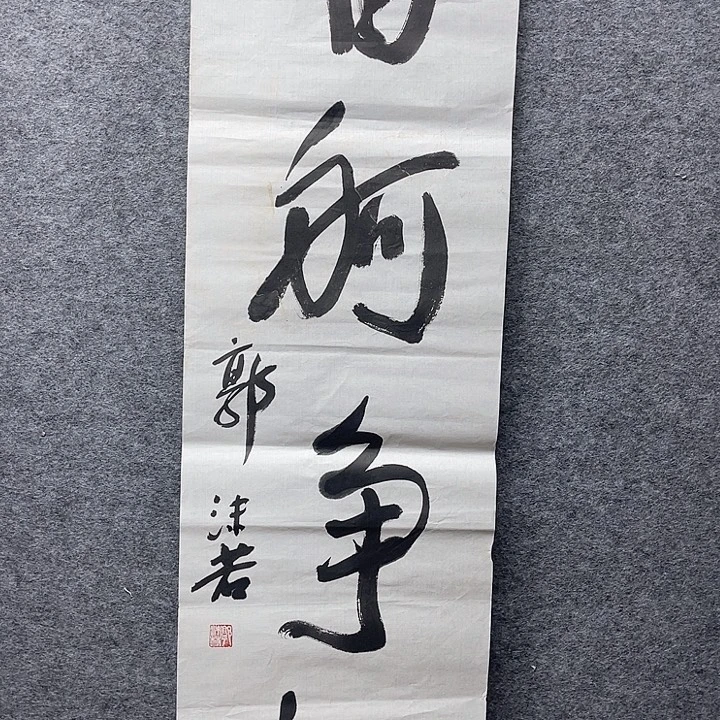 舸争
郭沫若